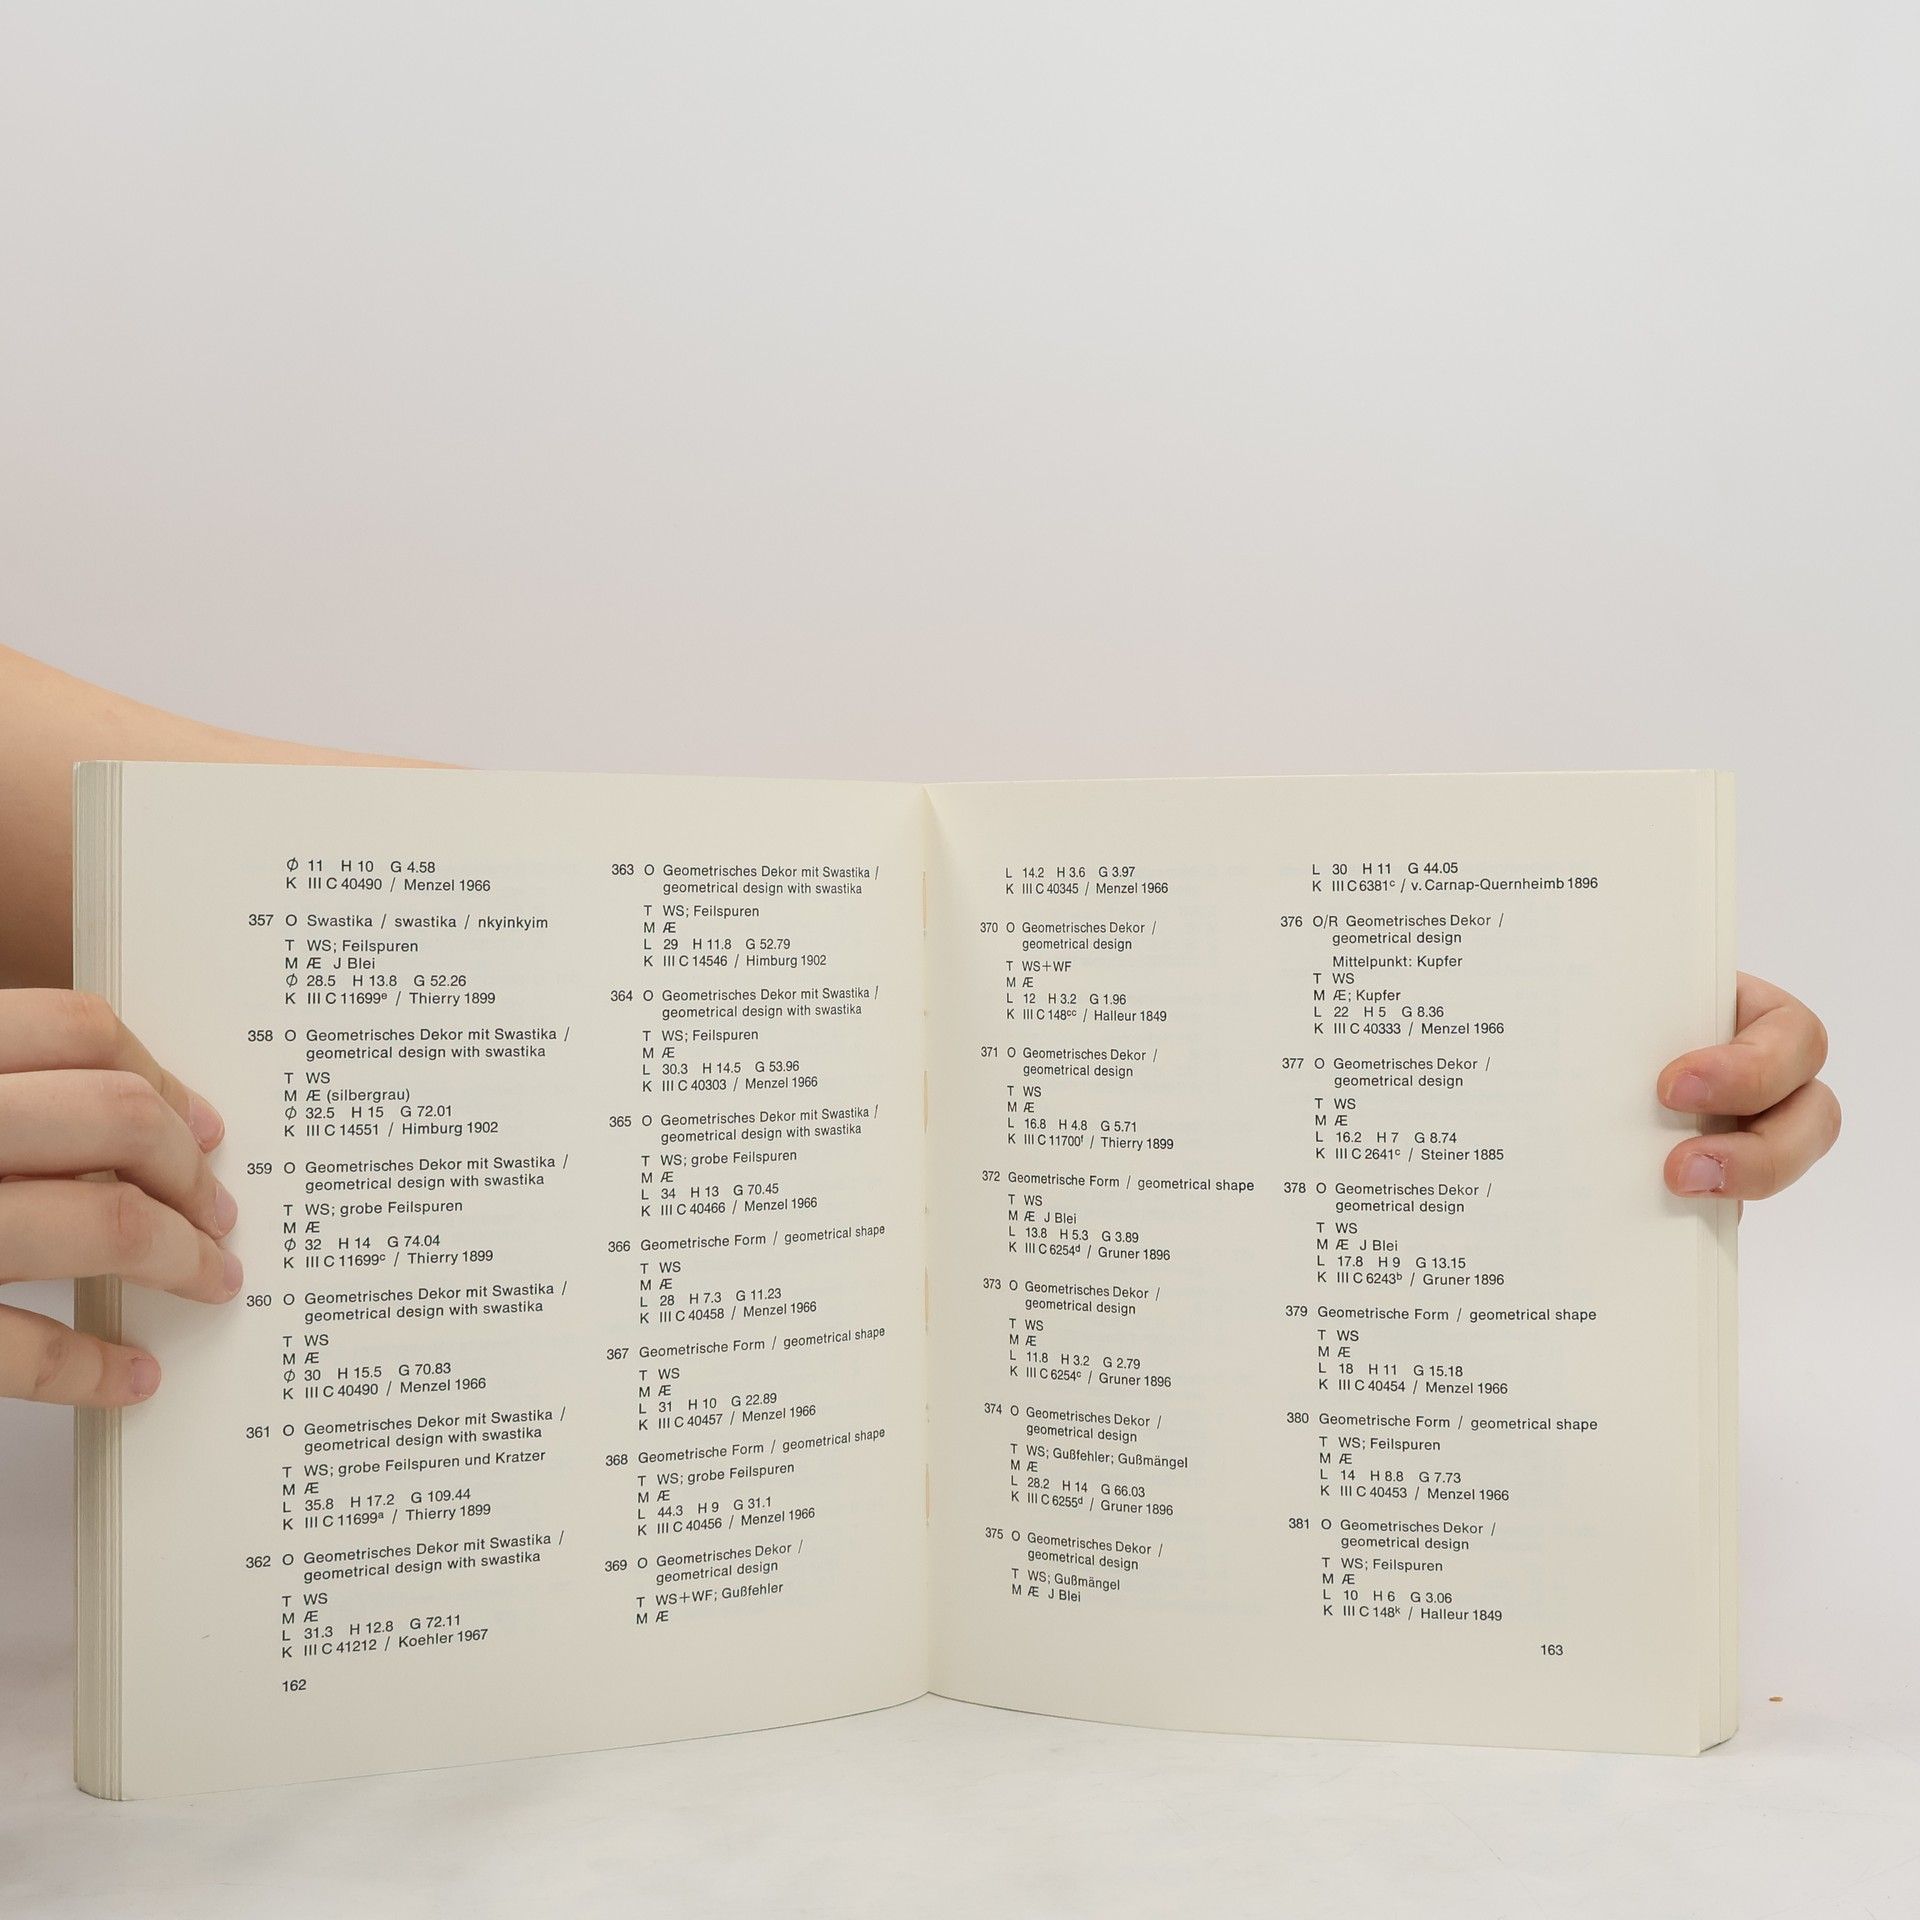 ∅ 11 H 10 G 4.58
K III C 40490 / Menzel 1966
357 O Swastika / swastika / nkyinkyim
T WS; Feilspuren
M Æ J Blei
∅ 28.5 H 13.8 G 52.26
K III C 11699ᵉ / Thierry 1899
358 O Geometrisches Dekor mit Swastika /
geometrical design with swastika
T WS
M Æ (silbergrau)
∅ 32.5 H 15 G 72.01
K III C 14551 / Himburg 1902
359 O Geometrisches Dekor mit Swastika /
geometrical design with swastika
T WS; grobe Feilspuren
M Æ
∅ 32 H 14 G 74.04
K III C 11699ᶜ / Thierry 1899
360 O Geometrisches Dekor mit Swastika /
geometrical design with swastika
T WS
M Æ
∅ 30 H 15.5 G 70.83
K III C 40490 / Menzel 1966
361 O Geometrisches Dekor mit Swastika /
geometrical design with swastika
T WS; grobe Feilspuren und Kratzer
M Æ
L 35.8 H 17.2 G 109.44
K III C 11699ᵃ / Thierry 1899
362 O Geometrisches Dekor mit Swastika /
geometrical design with swastika
T WS
M Æ
L 31.3 H 12.8 G 72.11
K III C 41212 / Koehler 1967
162
363 O Geometrisches Dekor mit Swastika /
geometrical design with swastika
T WS; Feilspuren
M Æ
L 29 H 11.8 G 52.79
K III C 14546 / Himburg 1902
364 O Geometrisches Dekor mit Swastika /
geometrical design with swastika
T WS; Feilspuren
M Æ
L 30.3 H 14.5 G 53.96
K III C 40303 / Menzel 1966
365 O Geometrisches Dekor mit Swastika /
geometrical design with swastika
T WS; grobe Feilspuren
M Æ
L 34 H 13 G 70.45
K III C 40466 / Menzel 1966
366 Geometrische Form / geometrical shape
T WS
M Æ
L 28 H 7.3 G 11.23
K III C 40458 / Menzel 1966
367 Geometrische Form / geometrical shape
T WS
M Æ
L 31 H 10 G 22.89
K III C 40457 / Menzel 1966
368 Geometrische Form / geometrical shape
T WS; grobe Feilspuren
M Æ
L 44.3 H 9 G 31.1
K III C 40456 / Menzel 1966
369 O Geometrisches Dekor /
geometrical design
T WS+WF; Gußfehler
M Æ
L 14.2 H 3.6 G 3.97
K III C 40345 / Menzel 1966
370 O Geometrisches Dekor /
geometrical design
T WS+WF
M Æ
L 12 H 3.2 G 1.96
K III C 148ᶜᶜ / Halleur 1849
371 O Geometrisches Dekor /
geometrical design
T WS
M Æ
L 16.8 H 4.8 G 5.71
K III C 11700ᶠ / Thierry 1899
372 Geometrische Form / geometrical shape
T WS
M Æ J Blei
L 13.8 H 5.3 G 3.89
K III C 6254ᵈ / Gruner 1896
373 O Geometrisches Dekor /
geometrical design
T WS
M Æ
L 11.8 H 3.2 G 2.79
K III C 6254ᶜ / Gruner 1896
374 O Geometrisches Dekor /
geometrical design
T WS; Gußfehler; Gußmängel
M Æ
L 28.2 H 14 G 66.03
K III C 6255ᵈ / Gruner 1896
375 O Geometrisches Dekor /
geometrical design
T WS; Gußmängel
M Æ J Blei
L 30 H 11 G 44.05
K III C 6381ᶜ / v. Carnap-Quernheimb 1896
376 O/R Geometrisches Dekor /
geometrical design
Mittelpunkt: Kupfer
T WS
M Æ; Kupfer
L 22 H 5 G 8.36
K III C 40333 / Menzel 1966
377 O Geometrisches Dekor /
geometrical design
T WS
M Æ
L 16.2 H 7 G 8.74
K III C 2641ᶜ / Steiner 1885
378 O Geometrisches Dekor /
geometrical design
T WS
M Æ J Blei
L 17.8 H 9 G 13.15
K III C 6243ᵇ / Gruner 1896
379 Geometrische Form / geometrical shape
T WS
M Æ
L 18 H 11 G 15.18
K III C 40454 / Menzel 1966
380 Geometrische Form / geometrical shape
T WS; Feilspuren
M Æ
L 14 H 8.8 G 7.73
K III C 40453 / Menzel 1966
381 O Geometrisches Dekor /
geometrical design
T WS; Feilspuren
M Æ
L 10 H 6 G 3.06
K III C 148ᵏ / Halleur 1849
163